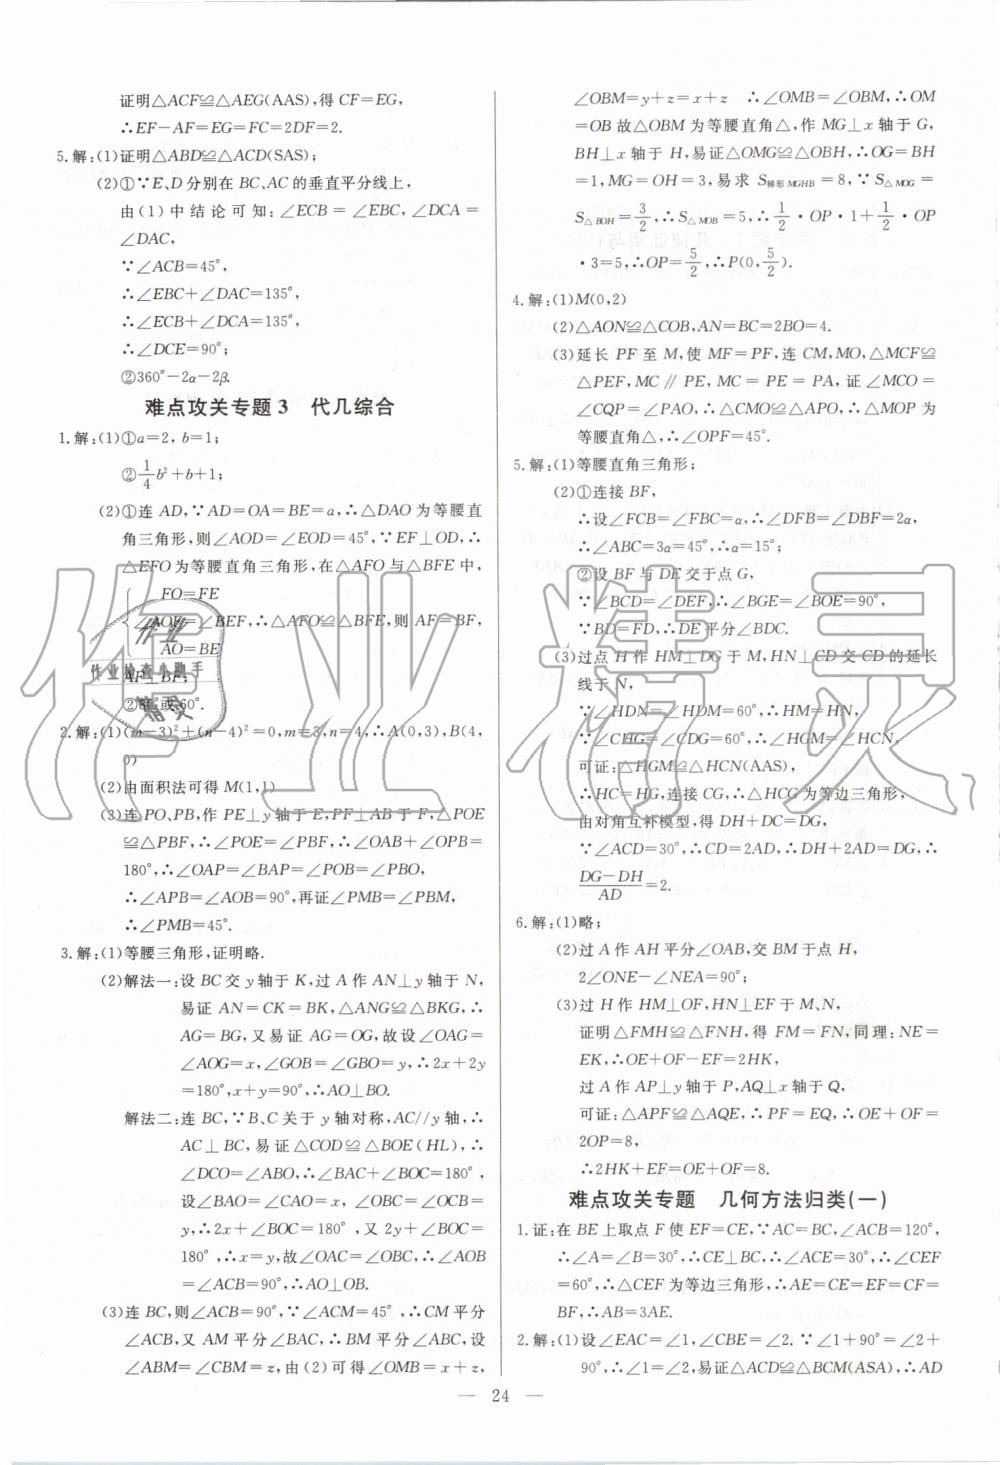 证明△ACF≌△AEG(AAS),得 CF=EG,
∴EF-AF=EG=FC=2DF=2.
5.解:(1)证明△ABD≌△ACD(SAS);
(2)①∵E、D 分别在 BC、AC 的垂直平分线上,
由(1)中结论可知:∠ECB=∠EBC,∠DCA=
∠DAC,
∵∠ACB=45°,
∴∠EBC+∠DAC=135°,
∴∠ECB+∠DCA=135°,
∴∠DCE=90°;
②360°-2α-2β.
难点攻关专题 3 代几综合
1.解:(1)①a=2,b=1;
②1/4 b²+b+1;
(2)①连 AD,∵AD=OA=BE=a,∴△DAO 为等腰直
角三角形,则∠AOD=∠EOD=45°,∵EF⊥OD,∴
△EFO为等腰直角三角形,在△AFO与△BFE中,
FO=FE
∠AOF=∠BEF,∴△AFO≌△BFE,则 AF=BF,
AO=BE
AF⊥BF;
或60°.
2.解:(1)(m-3)²+(n-4)²=0,m=3,n=4,∴A(0,3),B(4,
0)
(2)由面积法可得 M(1,1)
(3)连PO、PB,作 PE⊥y轴于 E,PF⊥AB于 F,△POE
≌△PBF,∴∠POE=∠PBF,∴∠OAB+∠OPB=
180°,∴∠OAP=∠BAP=∠POB=∠PBO,
∴∠APB=∠AOB=90°,再证∠PMB=∠PBM,
∴∠PMB=45°.
3.解:(1)等腰三角形,证明略.
(2)解法一:设 BC 交 y 轴于 K,过 A 作 AN⊥y 轴于 N,
易证 AN=CK=BK,△ANG≌△BKG,∴
AG=BG,又易证 AG=OG,故设∠OAG=
∠AOG=x,∠GOB=∠GBO=y,∴2x+2y
=180°,x+y=90°,∴AO⊥BO.
解法二:连 BC,∵B、C 关于 y 轴对称,AC//y 轴,∴
AC⊥BC,易证△COD≌△BOE(HL),∴
∠DCO=∠ABO,∴∠BAC+∠BOC=180°,
设∠BAO=∠CAO=x,∠OBC=∠OCB=
y,∴2x+∠BOC=180°,又 2y+∠BOC=
180°,∴x=y,故∠OAC=∠OBC,∴∠AOB
=∠ACB=90°,∴AO⊥OB.
(3)连 BC,则∠ACB=90°,∵∠ACM=45°,∴CM 平分
∠ACB,又 AM 平分∠BAC,∴BM 平分∠ABC,设
∠ABM=∠CBM=z,由(2)可得∠OMB=x+z,
∠OBM=y+z=x+z ∴∠OMB=∠OBM,∴OM
=OB 故△OBM 为等腰直角△,作 MG⊥x 轴于 G,
BH⊥x 轴于 H,易证△OMG≌△OBH,∴OG=BH
=1,MG=OH=3,易求 S梯形MGHB=8,∵S△MOG=
S△BOH=3/2,∴S△MOB=5,∴1/2·OP·1+1/2·OP
·3=5,∴OP=5/2,∴P(0,5/2).
4.解:(1)M(0,2)
(2)△AON≌△COB,AN=BC=2BO=4.
(3)延长 PF 至 M,使 MF=PF,连 CM,MO,△MCF≌
△PEF,MC∥PE,MC=PE=PA,证∠MCO
=∠CQP=∠PAO,∴△CMO≌△APO,∴△MOP 为
等腰直角△,∴∠OPF=45°.
5.解:(1)等腰直角三角形;
(2)①连接 BF,
∴设∠FCB=∠FBC=α,∴∠DFB=∠DBF=2α,
∴∠ABC=3α=45°,∴α=15°;
②设 BF 与 DE 交于点 G,
∵∠BCD=∠DEF,∴∠BGE=∠BOE=90°,
∵BD=FD,∴DE 平分∠BDC.
(3)过点 H 作 HM⊥DG 于 M,HN⊥CD 交 CD 的延长
线于 N,
∵∠HDN=∠HDM=60°,∴HM=HN,
∵∠CHG=∠CDG=60°,∴∠HGM=∠HCN,
可证:△HGM≌△HCN(AAS),
∴HC=HG,连接 CG,∴△HCG 为等边三角形,
由对角互补模型,得 DH+DC=DG,
∵∠ACD=30°,∴CD=2AD,∴DH+2AD=DG,∴
(DG-DH)/AD=2.
6.解:(1)略;
(2)过 A 作 AH 平分∠OAB,交 BM 于点 H,
2∠ONE-∠NEA=90°;
(3)过 H 作 HM⊥OF,HN⊥EF 于 M、N,
证明△FMH≌△FNH,得 FM=FN,同理:NE=
EK,∴OE+OF-EF=2HK,
过 A 作 AP⊥y 轴于 P,AQ⊥x 轴于 Q,
可证:△APF≌△AQE,∴PF=EQ,∴OE+OF=
2OP=8,
∴2HK+EF=OE+OF=8.
难点攻关专题 几何方法归类(一)
1.证:在 BE 上取点 F 使 EF=CE,∵AC=BC,∠ACB=120°,
∴∠A=∠B=30°,∴CE⊥BC,∴∠ACE=30°,∴∠CEF
=60°,∴△CEF为等边三角形,∴AE=CE=EF=CF=
BF,∴AB=3AE.
2.解:(1)设∠EAC=∠1,∠CBE=∠2.∵∠1+90°=∠2+
90°,∴∠1=∠2,易证△ACD≌△BCM(ASA),∴AD
— 24 —
作业精灵
作业
作业检查小助手
精灵